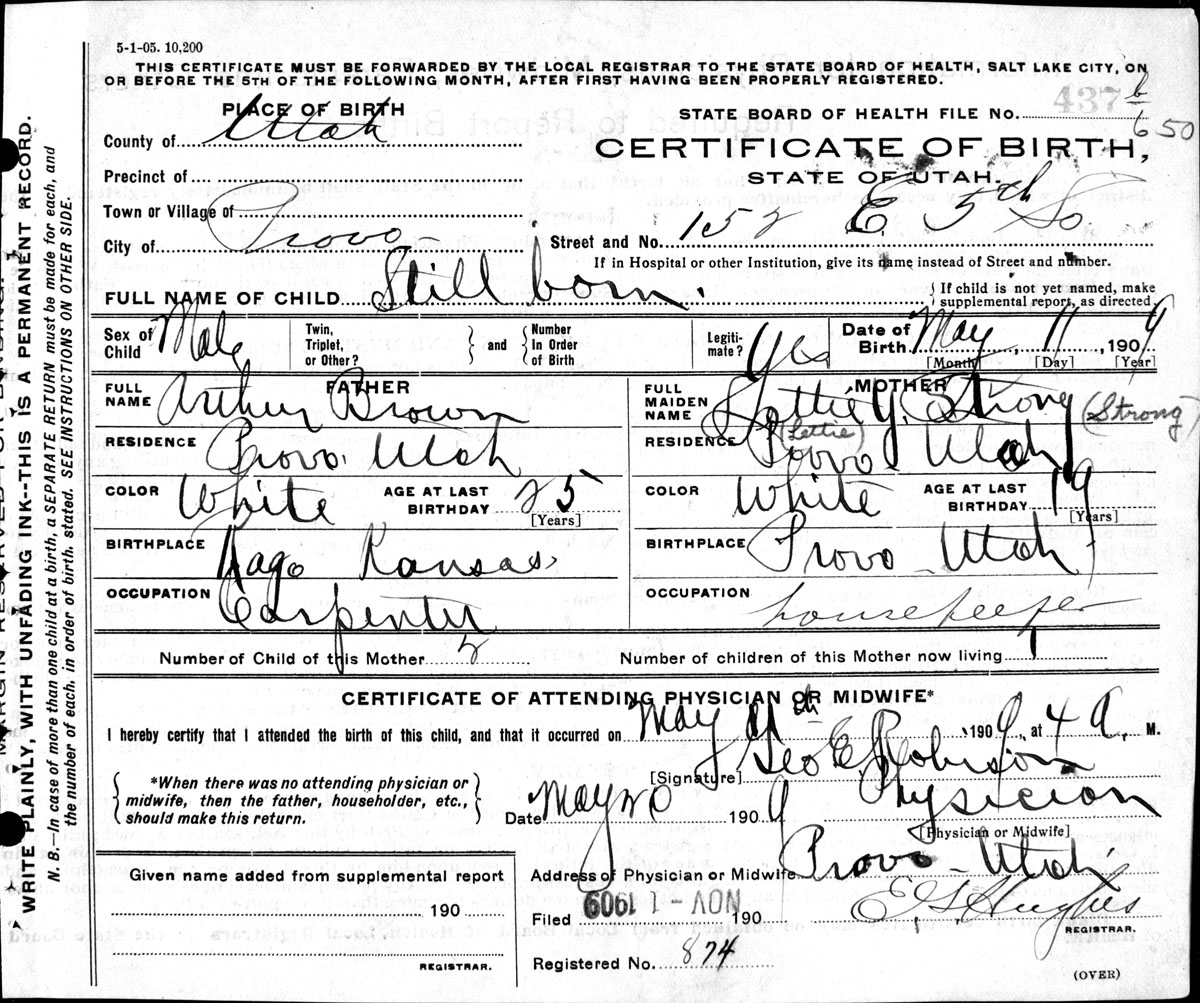 5-1-05. 10,200
THIS CERTIFICATE MUST BE FORWARDED BY THE LOCAL REGISTRAR TO THE STATE BOARD OF HEALTH, SALT LAKE CITY, ON
OR BEFORE THE 5TH OF THE FOLLOWING MONTH, AFTER FIRST HAVING BEEN PROPERLY REGISTERED.
PLACE OF BIRTH
County of Utah
Precinct of
Town or Village of
City of Provo
STATE BOARD OF HEALTH FILE NO. 437 6
6 50
CERTIFICATE OF BIRTH,
STATE OF UTAH.
Street and No. 152 E. 5th So
If in Hospital or other Institution, give its name instead of Street and number.
FULL NAME OF CHILD Still born.
{If child is not yet named, make
supplemental report, as directed
Sex of Child Male
Twin, Triplet, or Other? } and { Number In Order of Birth
Legiti-mate? Yes
Date of Birth May 11, 1909
[Month] [Day] [Year]
FATHER
FULL NAME Arthur Brown
RESIDENCE Provo. Utah
COLOR White AGE AT LAST BIRTHDAY 25
[Years]
BIRTHPLACE Kansas
OCCUPATION Carpenter
MOTHER
FULL MAIDEN NAME Lottie Y. Strong (Strong)
(Lettie)
RESIDENCE Provo Utah
COLOR White AGE AT LAST BIRTHDAY 19
[Years]
BIRTHPLACE Provo - Utah
OCCUPATION housekeeper
Number of Child of this Mother 2 Number of children of this Mother now living 1
CERTIFICATE OF ATTENDING PHYSICIAN OR MIDWIFE*
I hereby certify that I attended the birth of this child, and that it occurred on May 11th, 1909, at 4 A. M.
{*When there was no attending physician or
midwife, then the father, householder, etc.,
should make this return.}
[Signature] Geo E Robison
Date May 20 1909 Physician
[Physician or Midwife]
Address of Physician or Midwife Provo - Utah
Given name added from supplemental report
190
REGISTRAR.
Filed NOV - 1 1909 190 E G Hughes
REGISTRAR.
Registered No. 874
(OVER)
WRITE PLAINLY, WITH UNFADING INK--THIS IS A PERMANENT RECORD.
N. B.—In case of more than one child at a birth, a SEPARATE RETURN must be made for each, and
the number of each, in order of birth, stated. SEE INSTRUCTIONS ON OTHER SIDE.